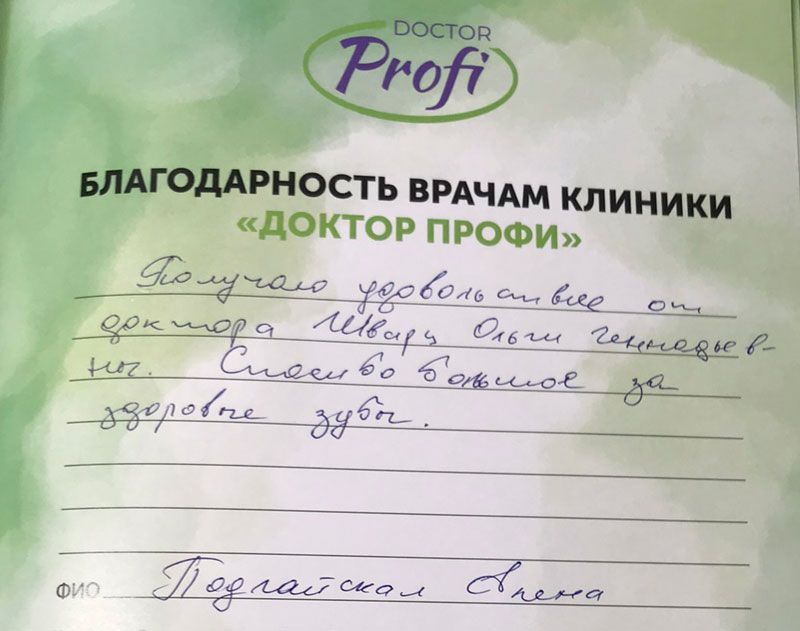 DOCTOR
Profi
БЛАГОДАРНОСТЬ ВРАЧАМ КЛИНИКИ
«ДОКТОР ПРОФИ»
Получаю удовольствие от
доктора Шварц Ольги Геннадьев-
ны. Спасибо большое за
здоровые зубы.
ФИО Подгайская Алена